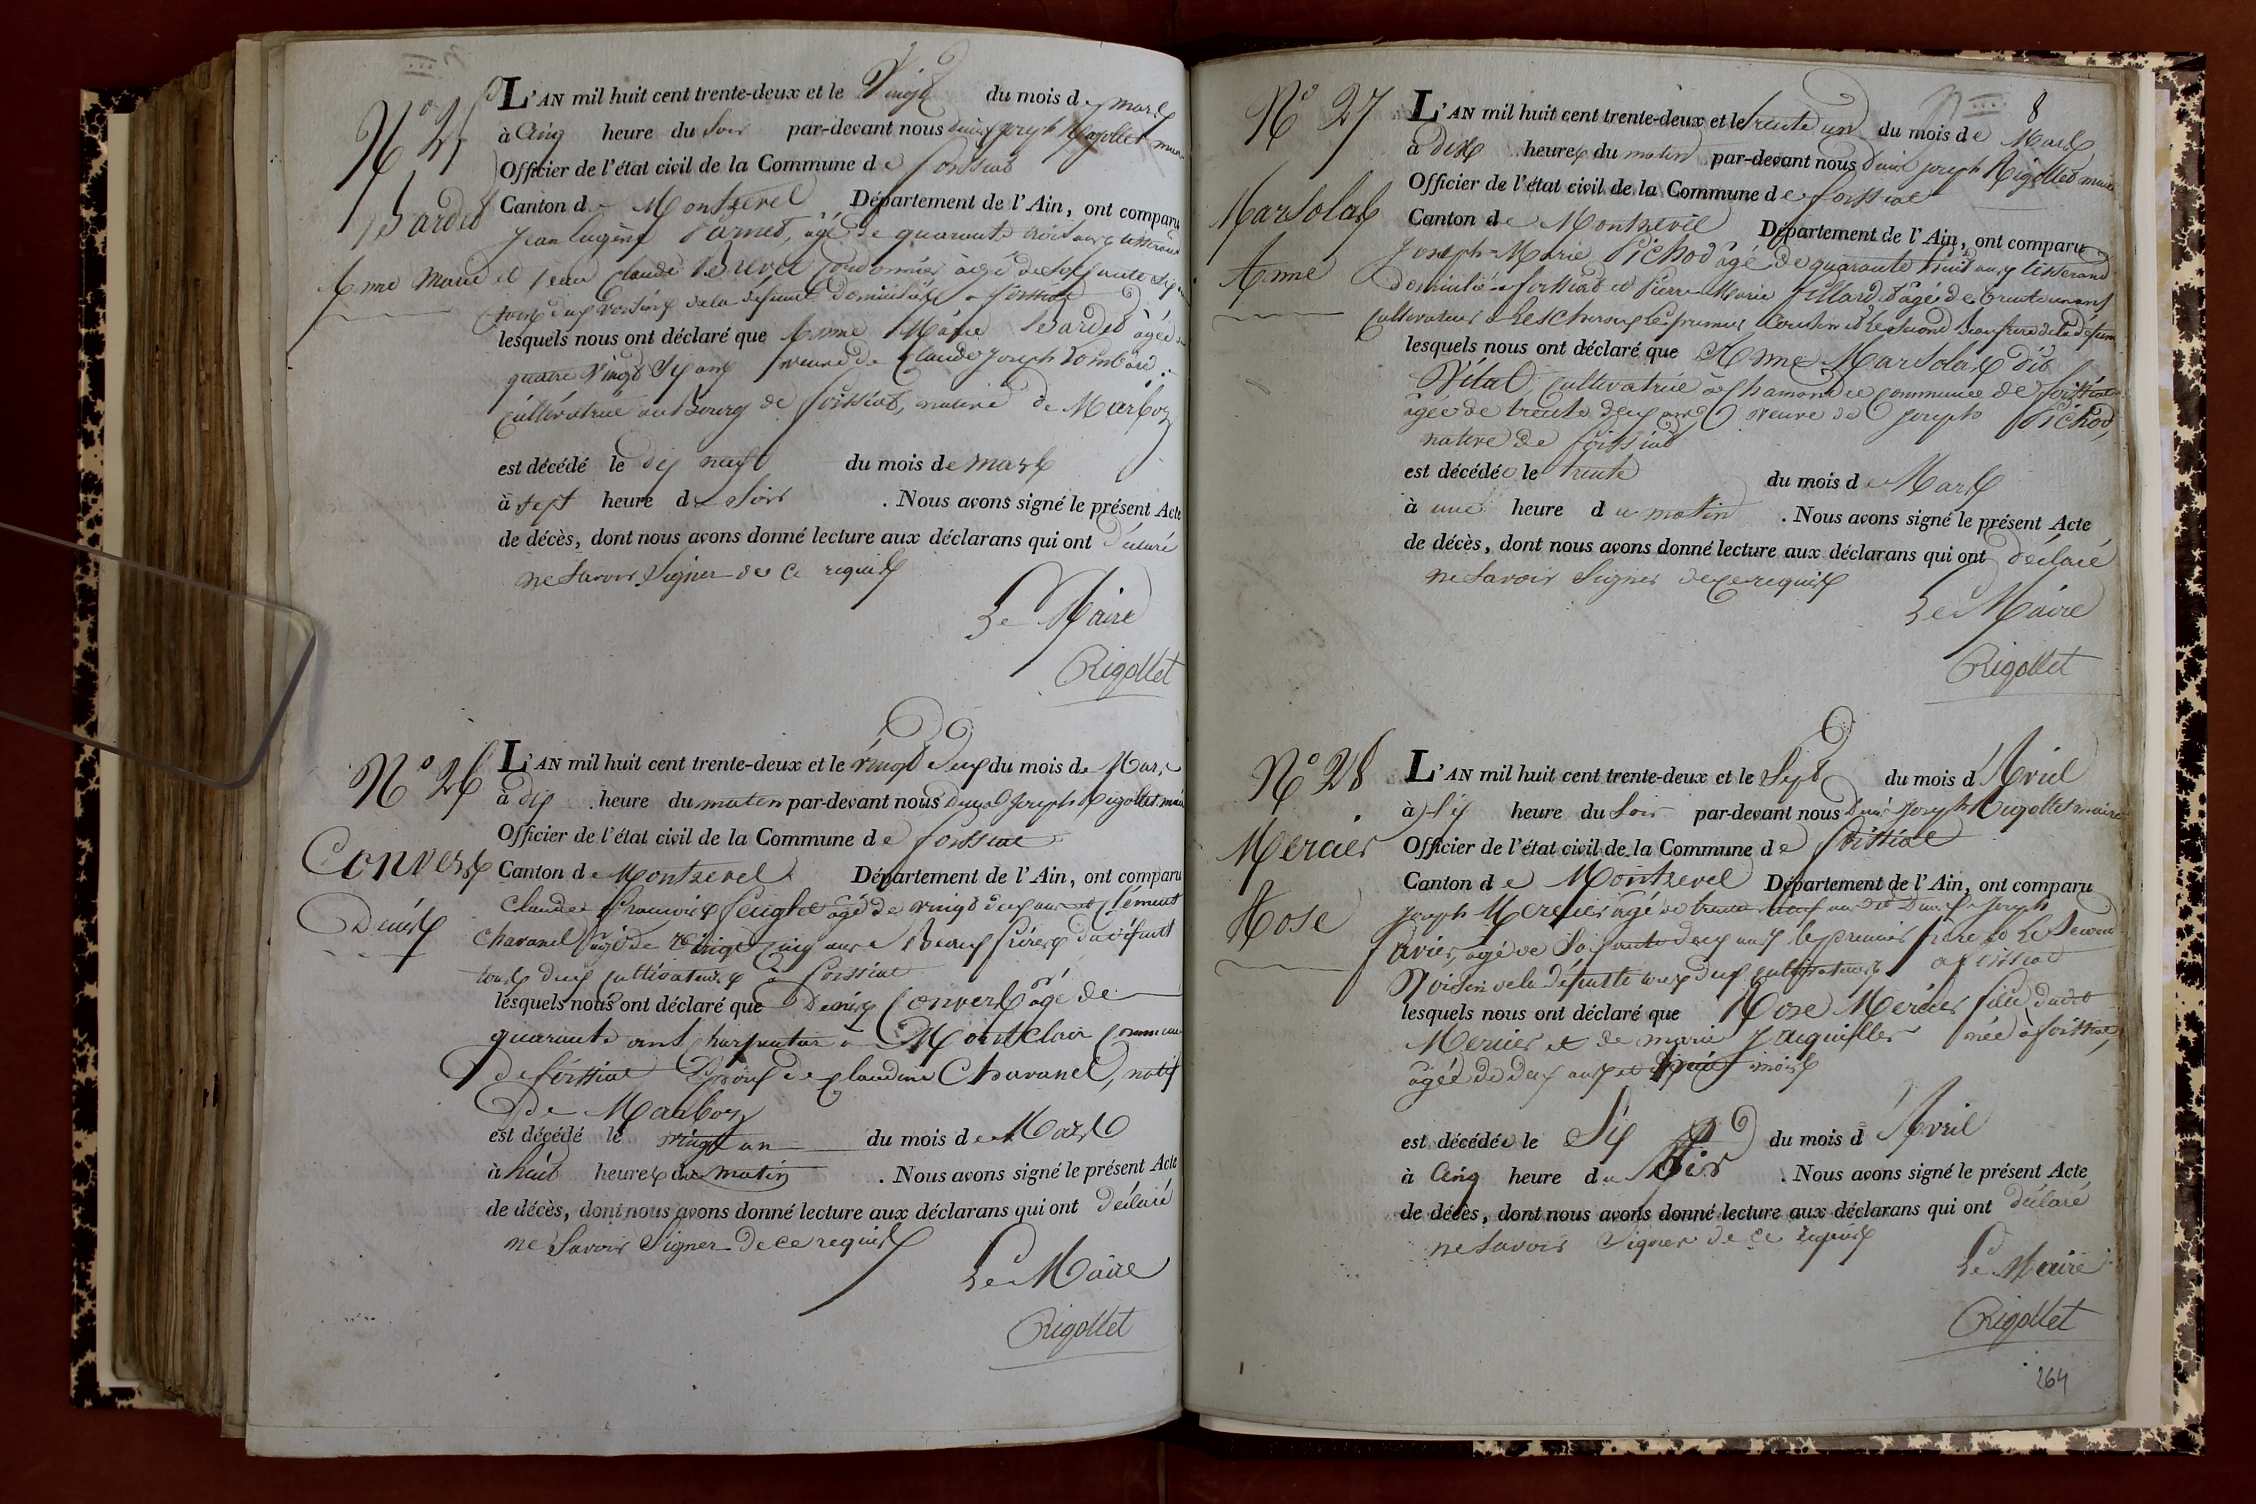 N° 25
Bardet
Anne Marie
L'AN mil huit cent trente-deux et le Vingt du mois de mars
à Cinq heure du Soir par-devant nous Denis Joseph Rigollet maire
Officier de l'état civil de la Commune de foissiat
Canton de Montrevel Département de l'Ain, ont comparu
Jean Eugène âgé de quarante trois ans tisserand
et Jean Claude cordonnier âgé de soixante
tous deux voisins de la défunte domiciliés a foissiat
lesquels nous ont déclaré que Anne Marie Bardet âgée de
quatre Vingt Six ans veuve de Claude Joseph
Cultivatrice au Bourg de foissiat, native de Marboz
est décédé le dix neuf du mois de mars
à sept heure de Soir . Nous avons signé le présent Acte
de décès, dont nous avons donné lecture aux déclarans qui ont déclaré
ne Savoir Signer de ce requis
Le Maire
Rigollet
N° 26
Convers
Denis
L'AN mil huit cent trente-deux et le vingt deux du mois de Mars
à dix heure du matin par-devant nous Denis Joseph Rigollet maire
Officier de l'état civil de la Commune de foissiat
Canton de Montrevel Département de l'Ain, ont comparu
Claude François âgé de vingt deux ans et Clément
Chavanel âgé de vingt cinq ans Beaux frères du défunt
tous deux Cultivateurs a foissiat
lesquels nous ont déclaré que Denis Convers âgé de
quarante ans Charpentier a Montclair Commune
de foissiat Epoux de Claudine Chavanel, natif
de Marboz
est décédé le vingt un du mois de Mars
à huit heures du matin . Nous avons signé le présent Acte
de décès, dont nous avons donné lecture aux déclarans qui ont déclaré
ne Savoir Signer de ce requis
Le Maire
Rigollet
8
N° 27
Marsolas
Anne
L'AN mil huit cent trente-deux et le trente un du mois de Mars
à dix heures du matin par-devant nous Denis Joseph Rigollet maire
Officier de l'état civil de la Commune de foissiat
Canton de Montrevel Département de l'Ain, ont comparu
Joseph-Marie Pichod âgé de quarante huit ans tisserand
domicilié a foissiat et Pierre Marie âgé de trente un ans
Cultivateur a Lescheroux le premier Cousin et le second beau frère de la défunte
lesquels nous ont déclaré que Anne Marsolas dit
Vital, Cultivatrice à Chamandre commune de foissiat
âgée de trente deux ans veuve de Joseph Pichod,
native de foissiat
est décédée le trente du mois de Mars
à une heure du matin . Nous avons signé le présent Acte
de décès, dont nous avons donné lecture aux déclarans qui ont déclaré
ne Savoir Signer de ce requis
Le Maire
Rigollet
N° 28
Mercier
Rose
L'AN mil huit cent trente-deux et le Sept du mois d'Avril
à Six heure du Soir par-devant nous Denis Joseph Rigollet maire
Officier de l'état civil de la Commune de foissiat
Canton de Montrevel Département de l'Ain, ont comparu
Joseph Mercier âgé de trente neuf ans et Denis Joseph
âgé de Soixante deux ans le premier Père et le Second
Voisin de la défunte tous deux cultivateurs a foissiat
lesquels nous ont déclaré que Rose Mercier fille dudit
Mercier et de marie née à foissiat,
âgée de deux ans et mois
est décédée le Six du mois d'Avril
à Cinq heure du Soir . Nous avons signé le présent Acte
de décès, dont nous avons donné lecture aux déclarans qui ont déclaré
ne Savoir Signer de ce requis
Le Maire
Rigollet
264